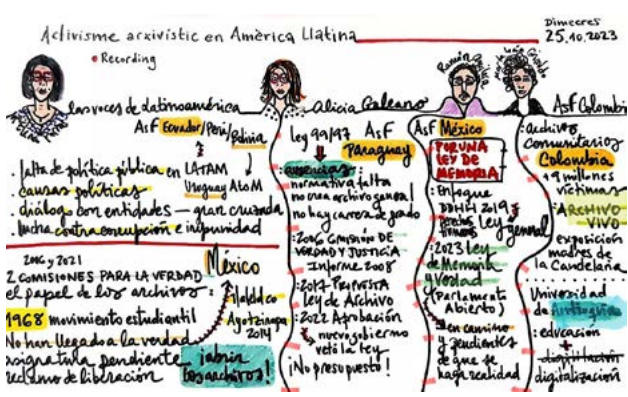 Activisme arxivístic en Amèrica Llatina
Dimecres
25.10.2023
• Recording
las voces de latinoamérica
AsF Ecuador/Perú/Bolivia
. falta de política pública en LATAM
. causas políticas Uruguay AtoM
. diálogo con entidades — gran cruzada
. lucha contra corrupción e impunidad
2006 y 2021
2 COMISIONES PARA LA VERDAD
el papel de los archivos:
1968 movimiento estudiantil
No han llegado a la verdad
asignatura pendiente
reclamo de liberación
México
Tlatelolco
Ayotzinapa
2014
¡abrir
los archivos!
Alicia Galeano
ley 99/97
AsF
Paraguay
: ausencias
normativa falta
no crea archivo general
no hay carrera de grado
: 2006 COMISIÓN DE
VERDAD Y JUSTICIA
Informe 2008
: 2017 PROPUESTA
Ley de Archivo
: 2022 Aprobación
nuevo gobierno
vetó la ley
¡No presupuesto!
Ramón
AsF México
POR UNA
LEY DE
MEMORIA
: Enfoque
DDHH 2019
Ley
general
: 2023 Ley
de Memoria
y Verdad
(Parlamento
Abierto)
en camino
y pendientes
de que se
haga realidad
Giraldo
AsF Colombia
: archivos
comunitarios
Colombia
+9 millones
víctimas
: ARCHIVO
VIVO
exposición
madres de
la Candelaria
Universidad
de Antioquia
: educación
+
digitalización